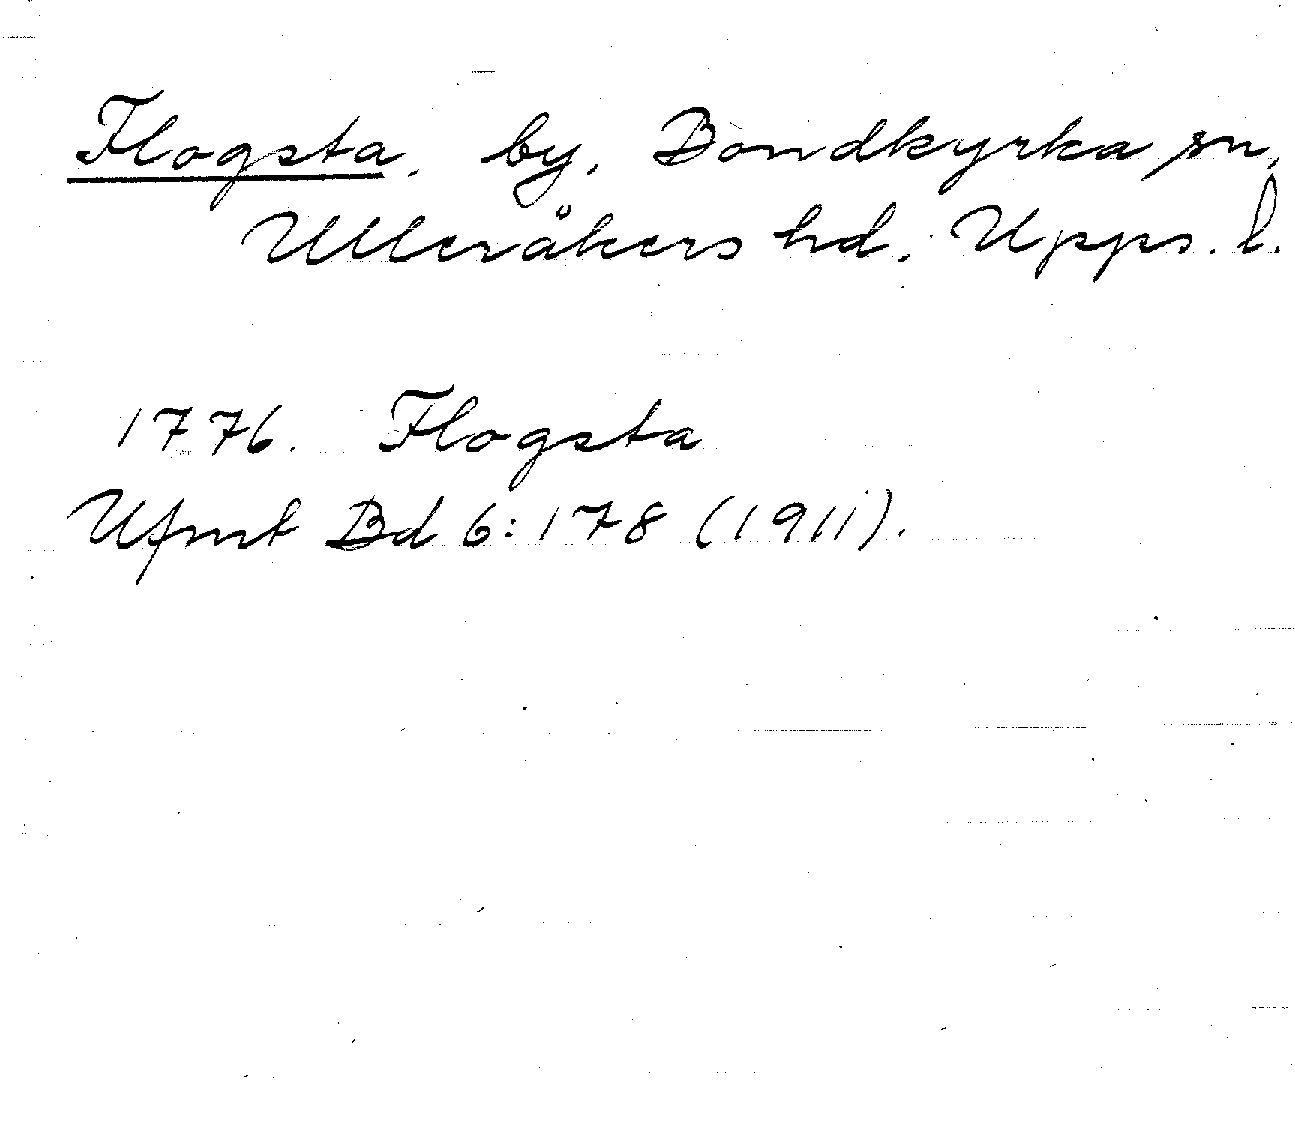 Flogsta, by, Bondkyrka sn,
Ulleråkers hd, Upps. l.
1776. Flogsta
Ufmt Bd 6:178 (1911).